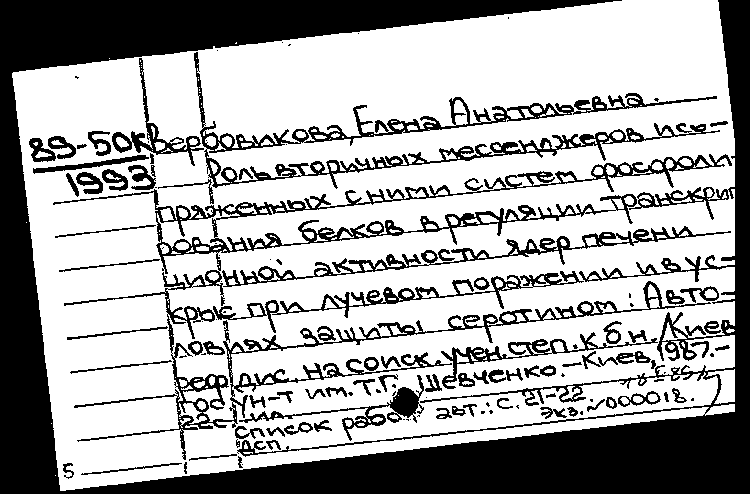 89-50к
1993
Вербовикова, Елена Анатольевна.
Роль вторичных мессенджеров и со-
пряженных с ними систем фосфоли-
рования белков в регуляции транскрип
ционной активности ядер печени
крыс при лучевом поражении и в ус-
ловиях защиты серотонином: Авто-
реф. дис. на соиск. учен. степ. к.б.н. / Киев
гос ун-т им. Т.Г. Шевченко. - Киев, 1987.-
22с
список рабо авт.: с. 21-22
дсп. экз. №000018.
5